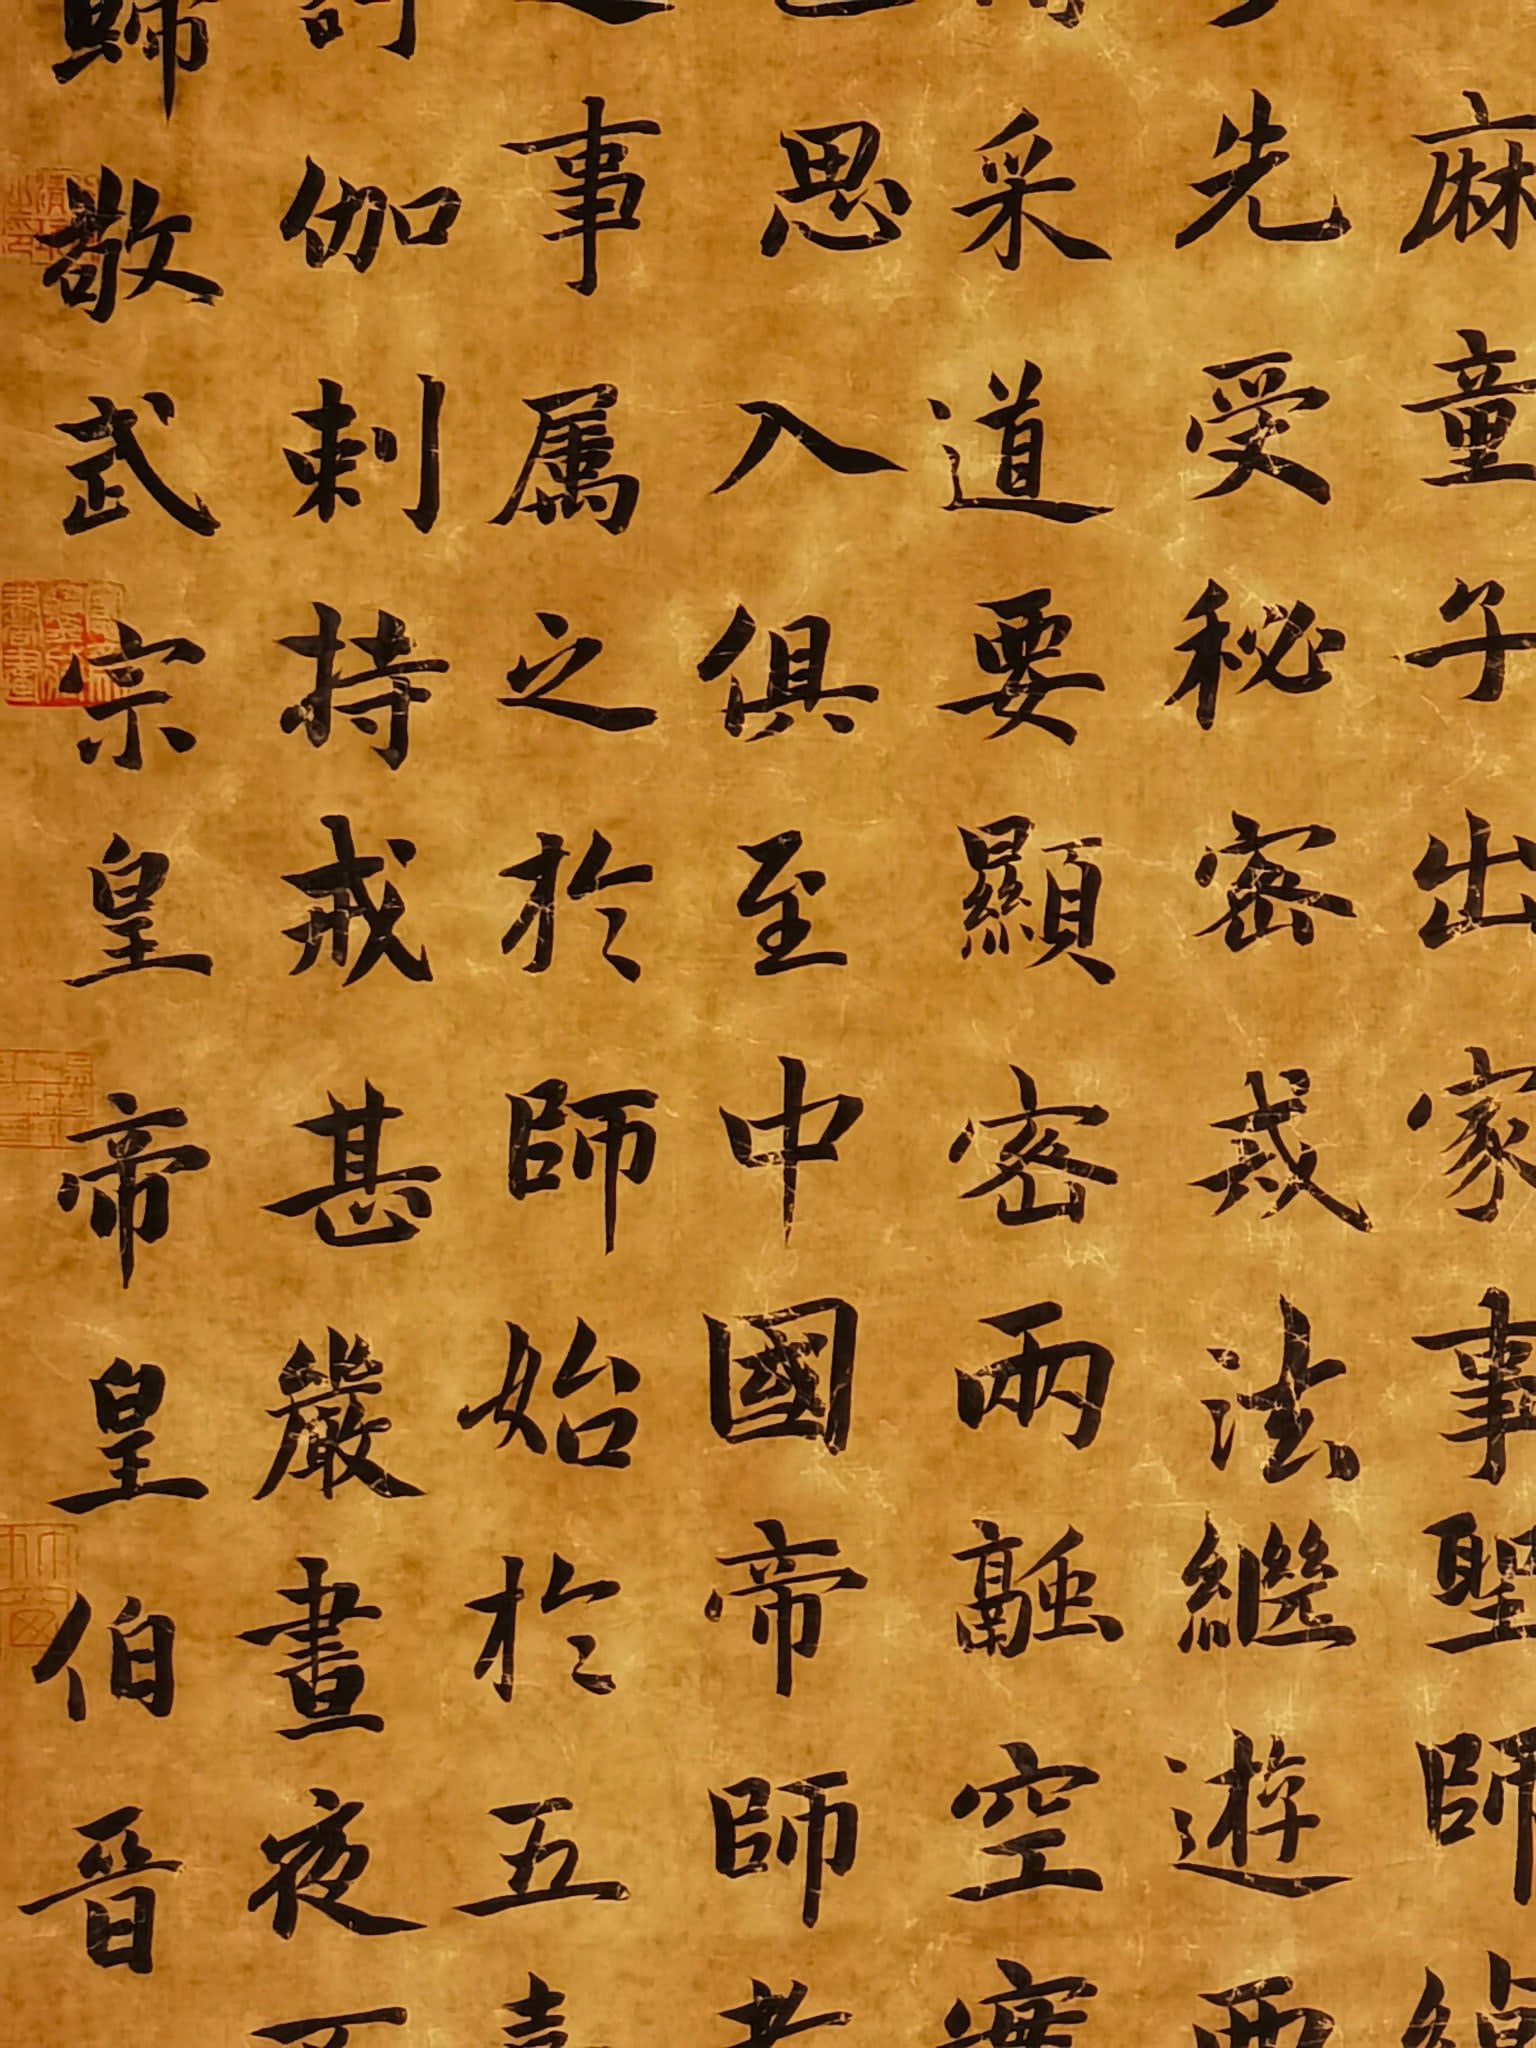 麻童子出家事聖師綽
先受秘密戒法繼遊西
采道要顯密兩融空實
思入俱至中國帝師
事属之於師始於五
伽剌持戒甚嚴晝夜不
歸敬武宗皇帝皇伯晉